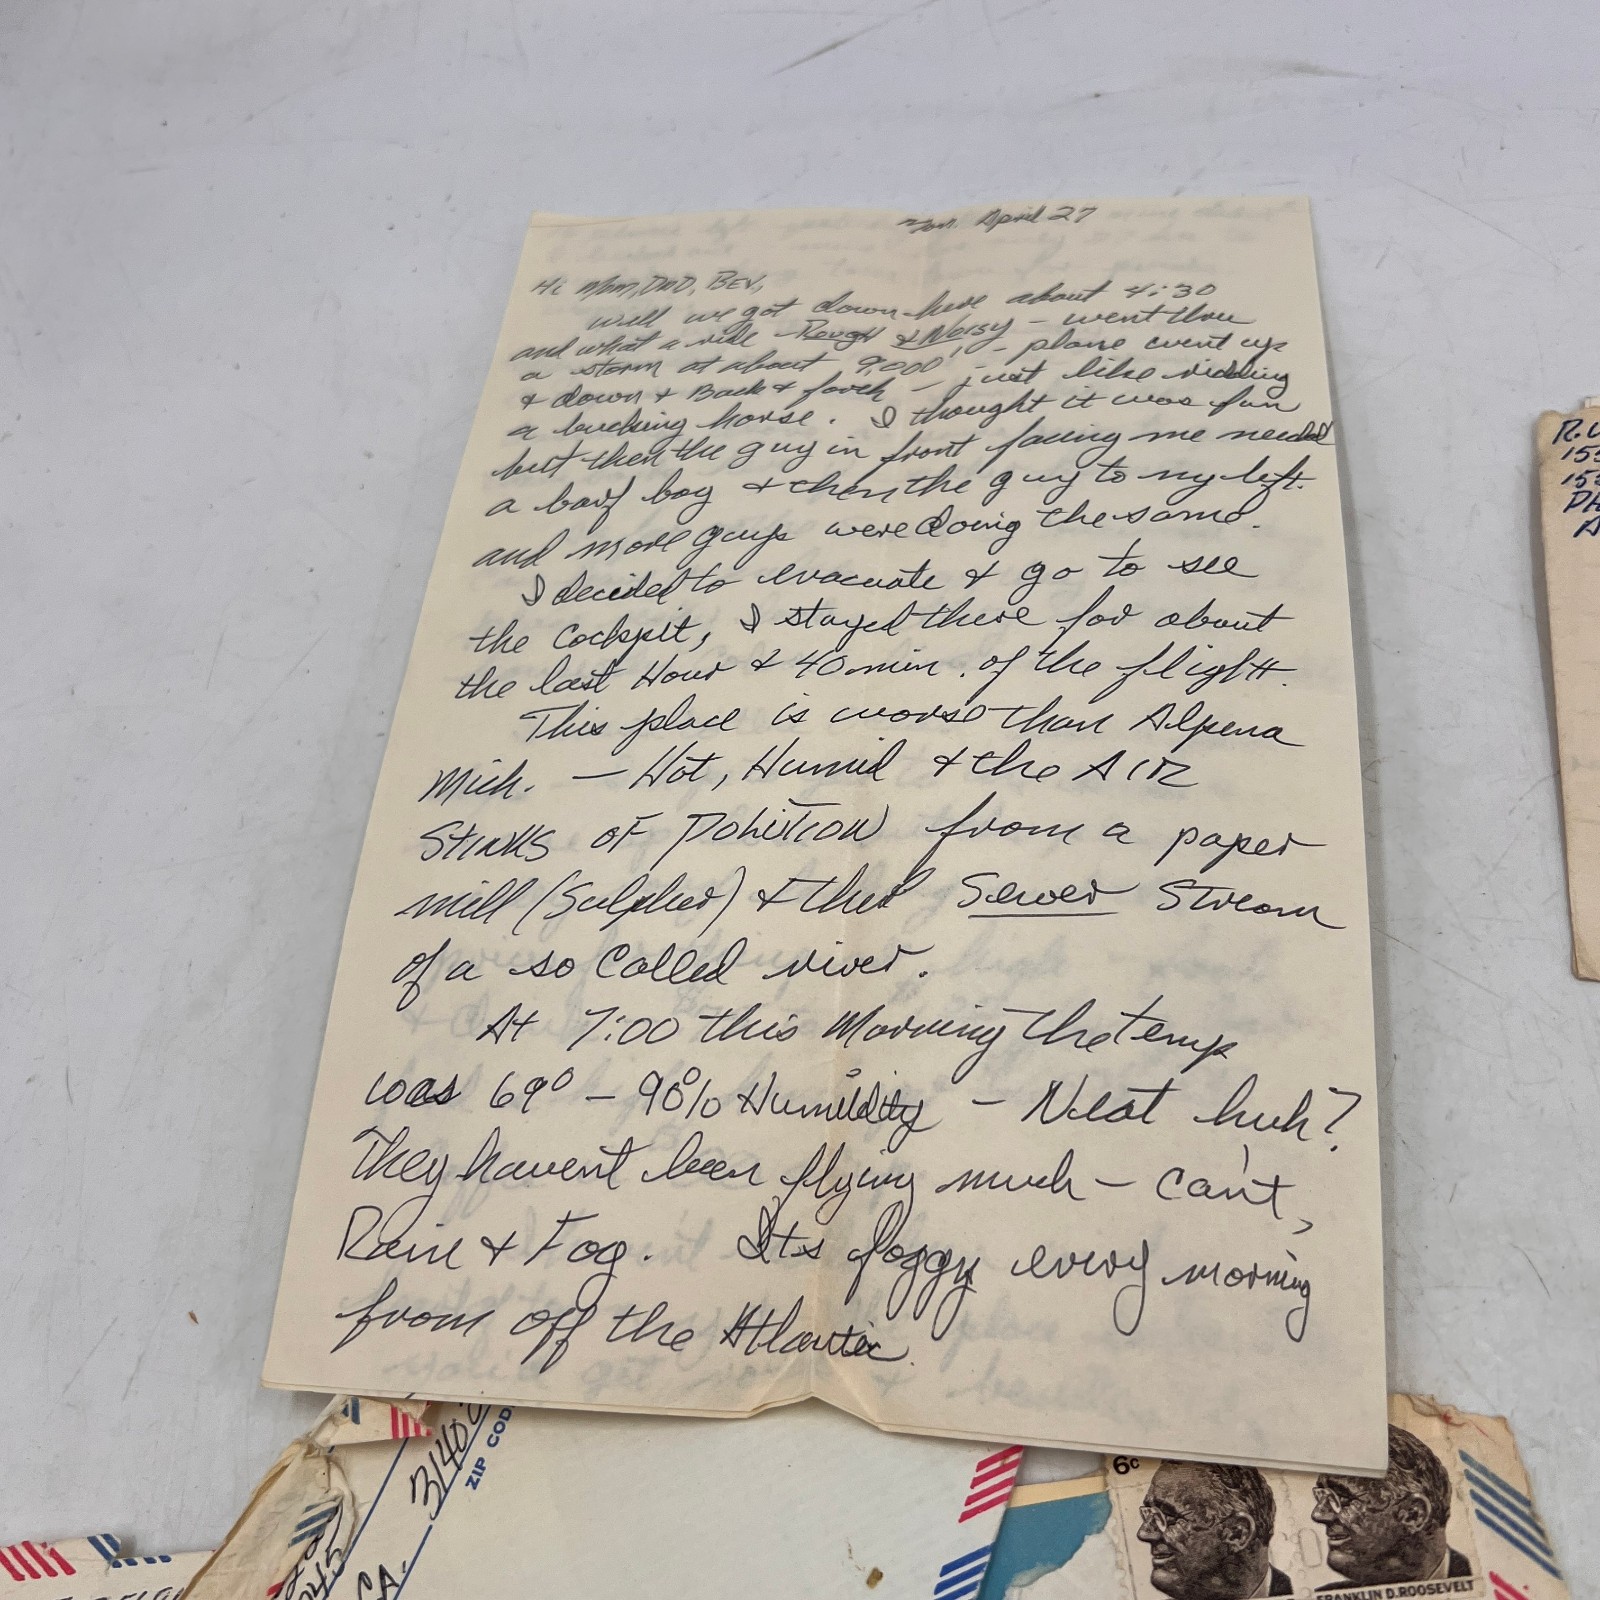 Mon. April 27
Hi Mom, DAD, BEV,
well we got down here about 4:30
and what a ride - Rough & Noisy - went thru
a storm at about 9,000', - plane went up
& down & Back & forth - just like ridding
a bucking horse. I thought it was fun
but then the guy in front facing me needed
a barf bag & then the guy to my left.
and more guys were doing the same.
I decided to evacuate & go to see
the Cockpit, I stayed there for about
the last Hour & 40 min. of the flight.
This place is worse than Alpena
Mich. - Hot, Humid & the AIR
STINKS OF POllUTION from a paper
mill (Sulpher) & their Sewer Stream
of a so Called river.
At 7:00 this Morning the temp
was 69° - 90% Humidity - Neat huh?
They haven't been flying much - can't,
Rain & Fog. Its foggy every morning
from off the Atlantic.
R.
155
PH
3140
ZIP COD
CA.
6c
FRANKLIN D. ROOSEVELT